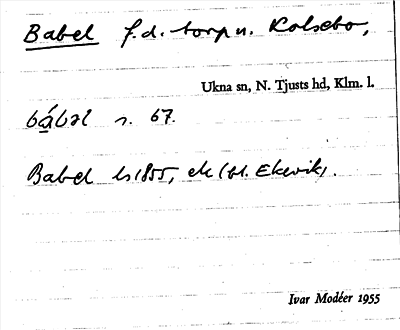 Babel f.d. torp u. Kolsebo,
Ukna sn, N. Tjusts hd, Klm. l.
bábəl n. 67.
Babel hs 1855, ek (bl. Ekevik).
Ivar Modéer 1955